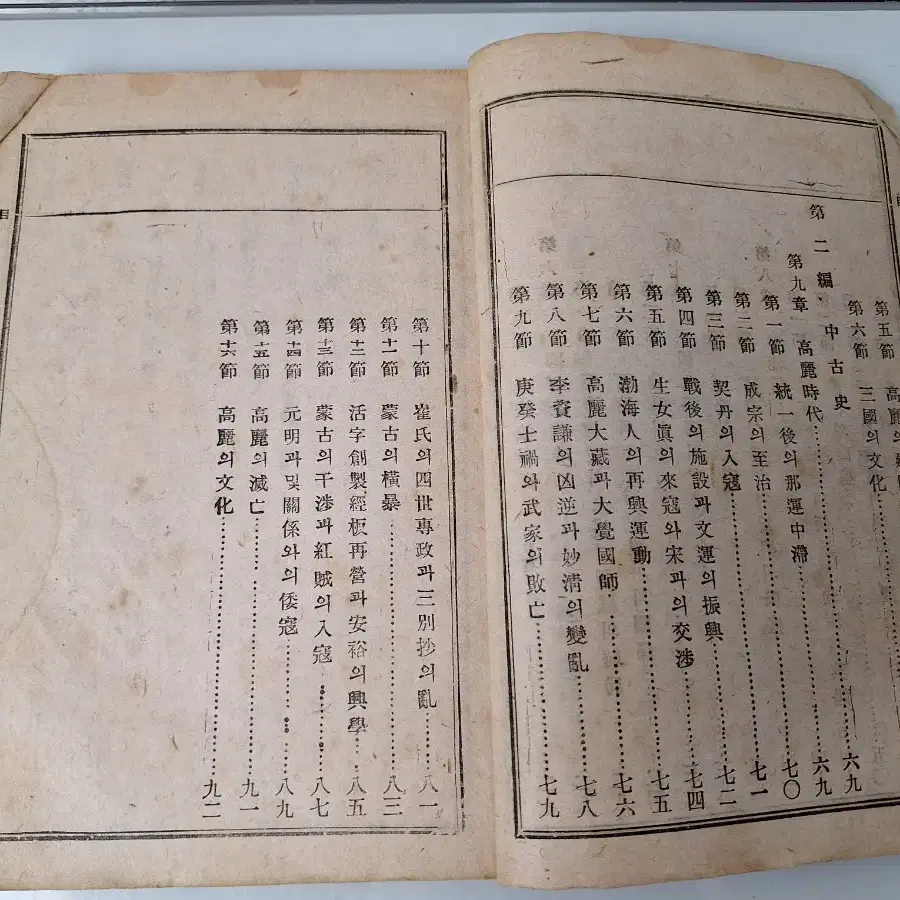 第五節 高麗
第六節 三國의文化 六九
第二編 中古史
第九章 高麗時代 六九
第一節 統一後의那運中滯 七〇
第二節 成宗의至治 七一
第三節 契丹의入寇 七二
第四節 戰後의施設과文運의振興 七四
第五節 生女眞의來寇와宋과의交涉 七五
第六節 渤海人의再興運動 七六
第七節 高麗大藏과大覺國師 七八
第八節 李資謙의凶逆과妙清의變亂
第九節 庚癸士禍와武家의敗亡 七九
第十節 崔氏의四世專政과三別抄의亂 八一
第十一節 蒙古의橫暴 八三
第十二節 活字創製經板再營과安裕의興學 八五
第十三節 蒙古의干涉과紅賊의入寇 八七
第十四節 元明과및關係와의倭寇 八九
第十五節 高麗의滅亡 九一
第十六節 高麗의文化 九二